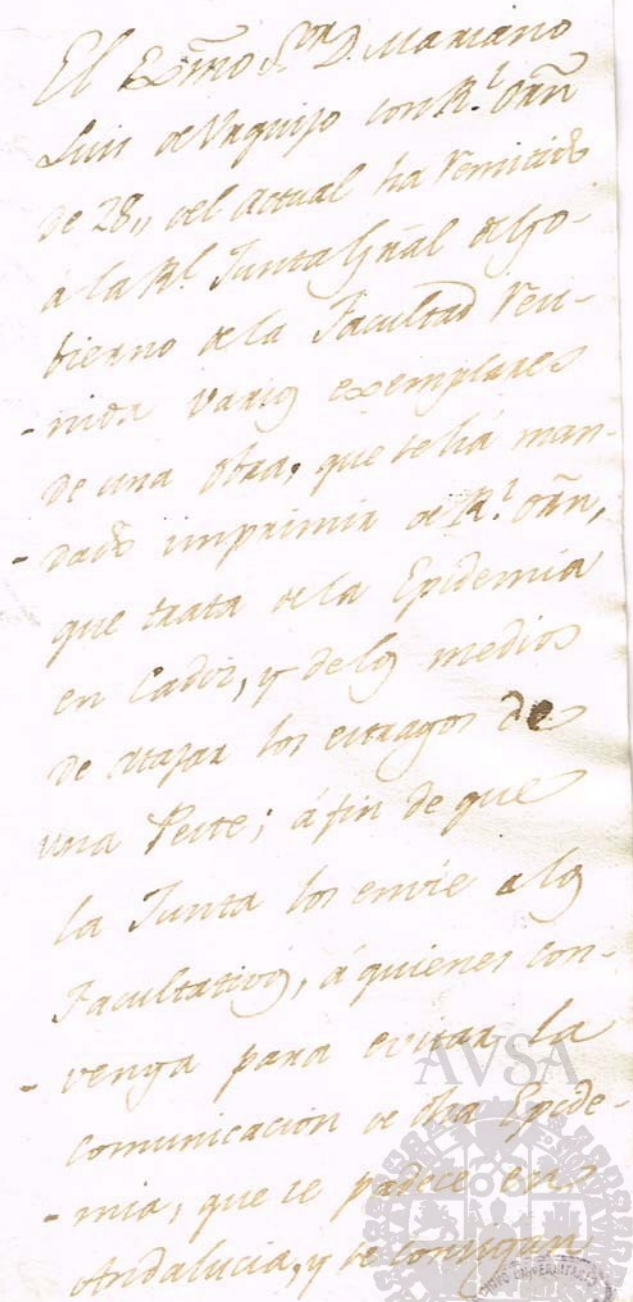 El Exmo S.ᵒʳ D. Mariano
Luis de Urquijo con R.ˡ orn̄
de 28,, del actual ha remitido
a la R.ˡ Junta Gral de Go-
bierno de la Facultad reu-
-nida varios exemplares
de una obra, que se há man-
-dado imprimir de R.ˡ orn̄,
que trata de la Epidemia
en Cadiz, y de los medios
de atajar los estragos de
una Peste; á fin de que
la Junta los envie a los
Facultativos, á quienes con-
-venga para evitar la
comunicacion de dha Epide-
-mia, que se padece en
Andalucia, y se consigan
AVSA